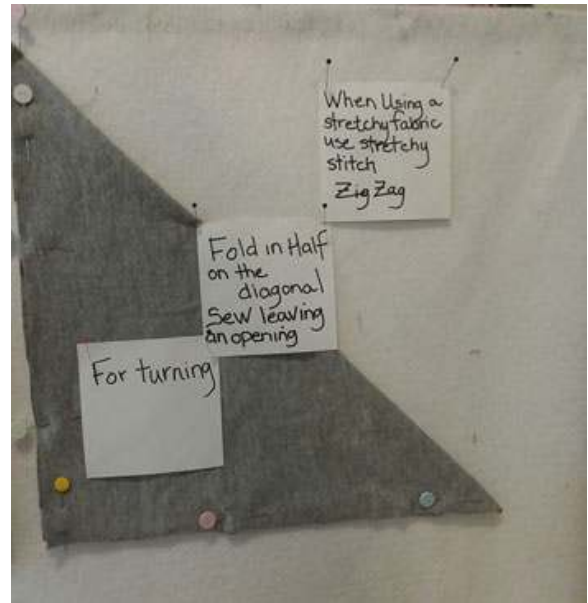 When Using a
stretchy fabric
use stretchy
stitch
Zig Zag
Fold in Half
on the
diagonal
Sew leaving
an opening
For turning